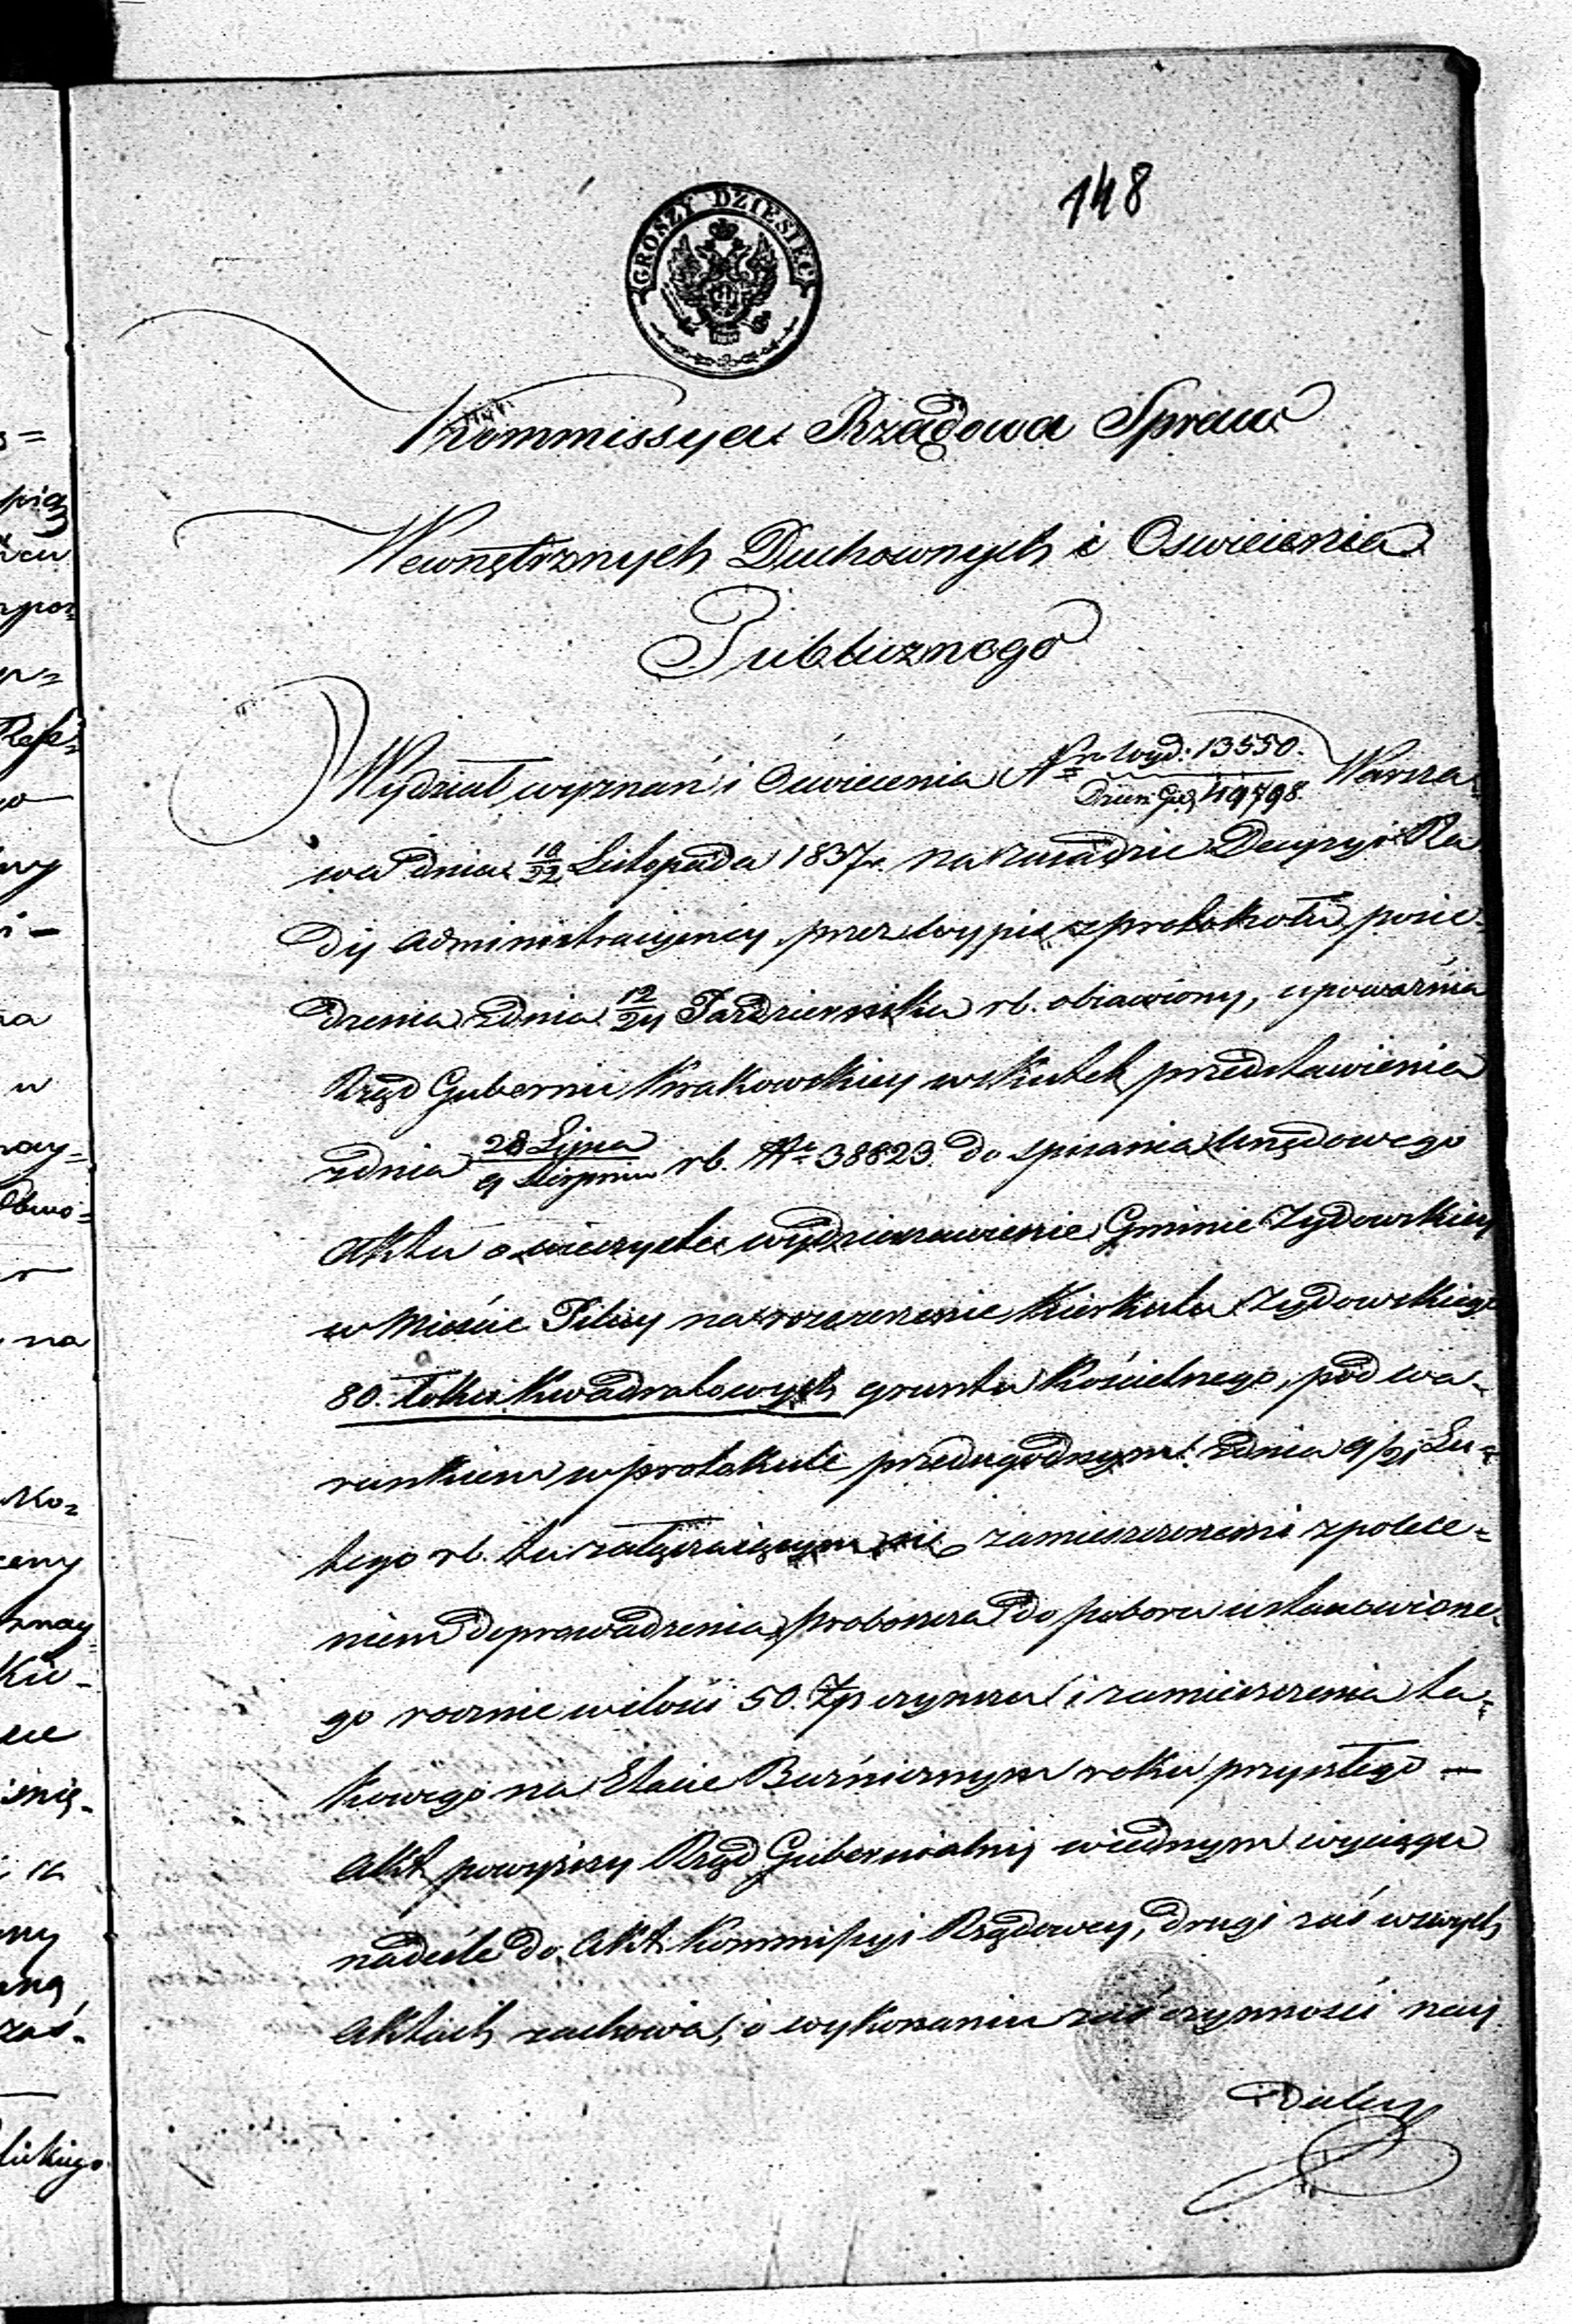 148
GROSZY DZIESIĘĆ
Kommissya Rządowa Spraw
Wewnętrznych Duchownych i Oswiecenia
Publicznego
Wydział wyznań i Oswiecenia Nr Wyd: 13550. Warsza=
Dzien: Gł: 49798.
wa dnia 10/22 Listopada 1837 r. na zasadzie Decyzyi Ra
dy Administracyiney, przez wypis z protokołu posie=
dzenia z dnia 12/24 Pazdziernika rb. obiawiony, upoważnia
Rząd Gubernii Krakowskiey wskutek przedstawienia
z dnia 28 Lipca / 9 Sierpnia rb. Nr 38823. do spisania Urzędowego
Aktu o wieczyste wydzierzawienie Gminie Zydowskiey
w Mieście Pilicy na rozszerzenie Kierkutu Zydowskiego
80. łokci Kwadratowych gruntu Kościelnego, pod wa=
runkiem w protokule przedugodnym z dnia 9/21 Lu=
tego rb. tu załączaiącym się zamieszczonemi z polece=
niem doprowadzenia proboszcza do poboru ustanowione=
go rocznie w ilości 50. Zp czynszu i zamieszczenia ta=
kowego na Etacie Bożniczym roku przyszłego —
Akt powyższy Rząd Gubernialny w iednym wyciągu
nadeśle do Akt Kommissyi Rządowey, drugi zaś w swych
Aktach zachowa, o wykonaniu zaś czynności nay
Daley
pią
Refe=
na
w
Ko=
Kie-
zaś-